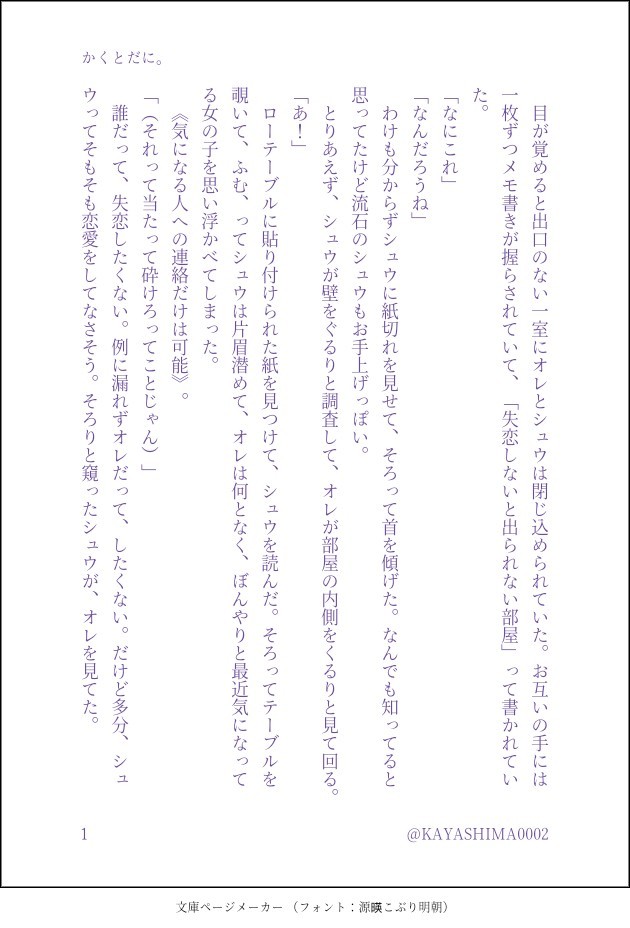 かくとだに。
　目が覚めると出口のない一室にオレとシュウは閉じ込められていた。お互いの手には
一枚ずつメモ書きが握らされていて、「失恋しないと出られない部屋」って書かれてい
た。
「なにこれ」
「なんだろうね」
　わけも分からずシュウに紙切れを見せて、そろって首を傾げた。なんでも知ってると
思ってたけど流石のシュウもお手上げっぽい。
　とりあえず、シュウが壁をぐるりと調査して、オレが部屋の内側をくるりと見て回る。
「あ！」
　ローテーブルに貼り付けられた紙を見つけて、シュウを読んだ。そろってテーブルを
覗いて、ふむ、ってシュウは片眉潜めて、オレは何となく、ぼんやりと最近気になって
る女の子を思い浮かべてしまった。
　《気になる人への連絡だけは可能》。
「（それって当たって砕けろってことじゃん）」
　誰だって、失恋したくない。例に漏れずオレだって、したくない。だけど多分、シュ
ウってそもそも恋愛をしてなさそう。そろりと窺ったシュウが、オレを見てた。
1
@KAYASHIMA0002
文庫ページメーカー（フォント：源暎こぶり明朝）